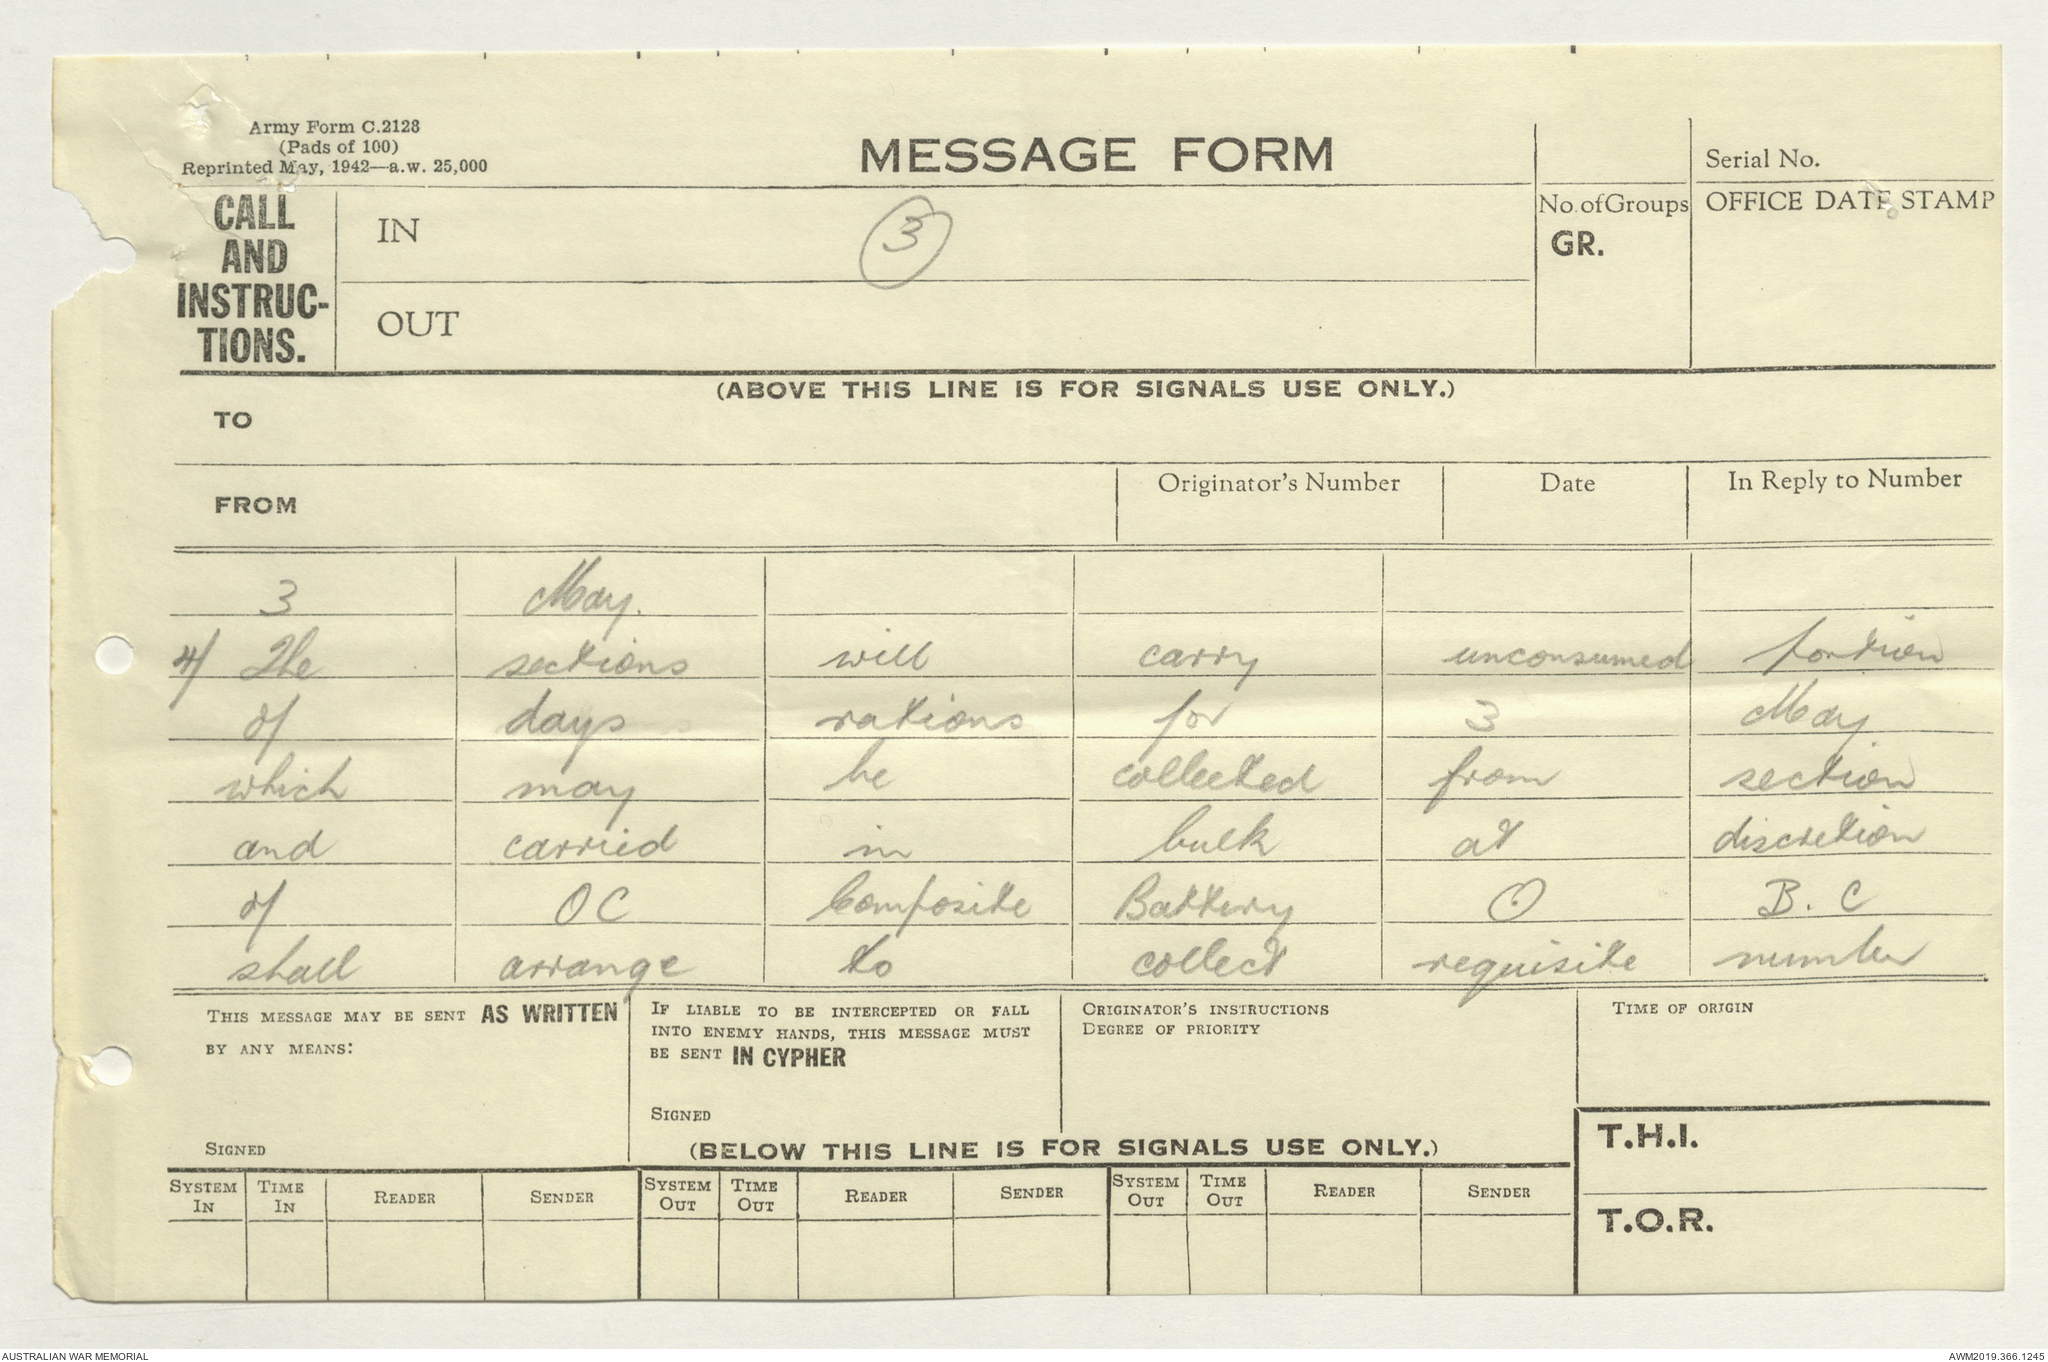 Army Form C.2128
(Pads of 100)
Reprinted May, 1942—a.w. 25,000
MESSAGE FORM
Serial No.
CALL AND INSTRUC-TIONS.
IN
3
OUT
No. of Groups
GR.
OFFICE DATE STAMP
(ABOVE THIS LINE IS FOR SIGNALS USE ONLY.)
TO
FROM
Originator's Number
Date
In Reply to Number
3 May.
4/ The sections will carry unconsumed portion
of days rations for 3 May
which may be collected from section
and carried in bulk at discretion
of OC Composite Battery ⊙ B.C
shall arrange to collect requisite number
THIS MESSAGE MAY BE SENT AS WRITTEN
BY ANY MEANS:
SIGNED
IF LIABLE TO BE INTERCEPTED OR FALL
INTO ENEMY HANDS, THIS MESSAGE MUST
BE SENT IN CYPHER
SIGNED
ORIGINATOR'S INSTRUCTIONS
DEGREE OF PRIORITY
TIME OF ORIGIN
(BELOW THIS LINE IS FOR SIGNALS USE ONLY.)
T.H.I.
T.O.R.
SYSTEM IN
TIME IN
READER
SENDER
SYSTEM OUT
TIME OUT
READER
SENDER
SYSTEM OUT
TIME OUT
READER
SENDER
AUSTRALIAN WAR MEMORIAL
AWM2019.366.1245